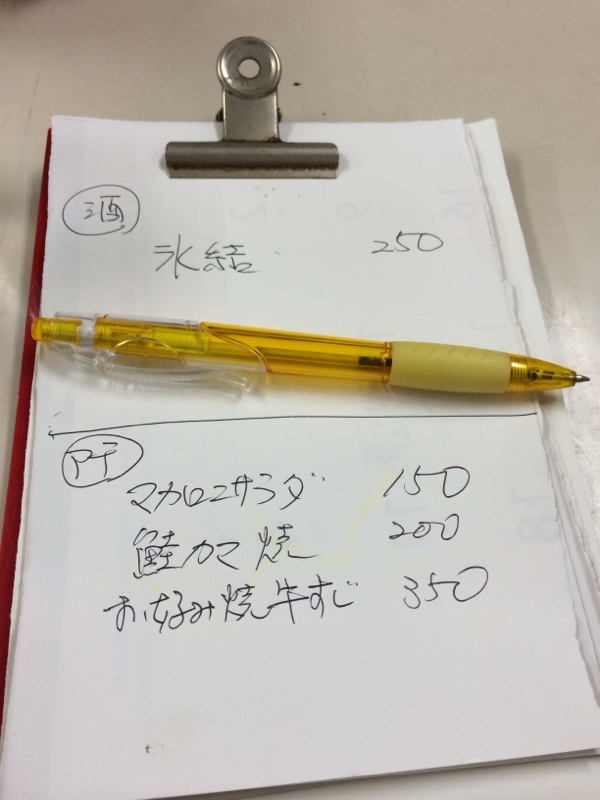 酒
氷結 250
アテ
マカロニサラダ 150
鮭カマ焼 200
お好み焼牛すじ 350